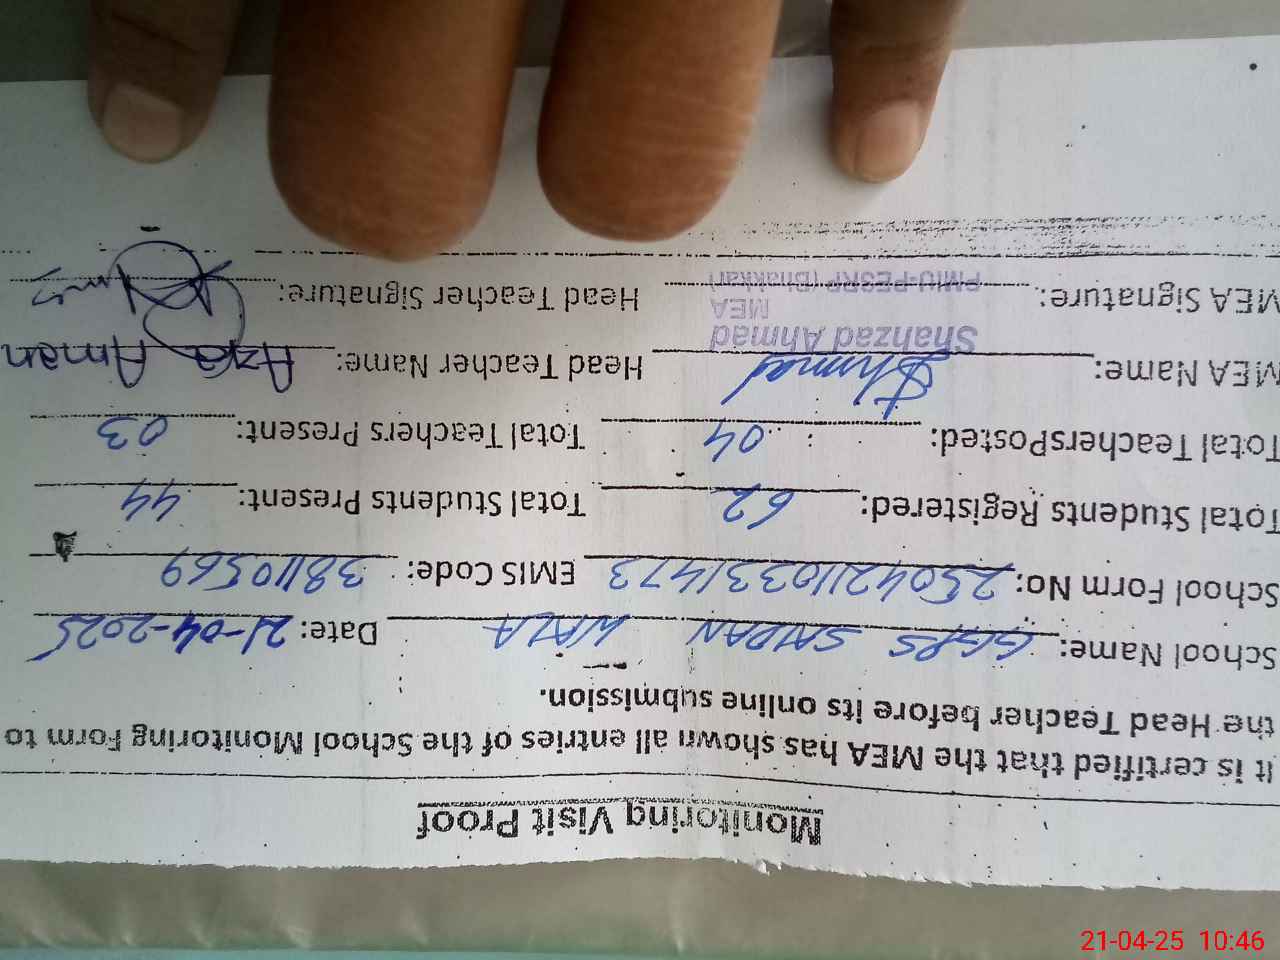 Monitoring Visit Proof
It is certified that the MEA has shown all entries of the School Monitoring Form to
the Head Teacher before its online submission.
School Name: GGPS SAIDAN WALA Date: 21-04-2025
School Form No: 2504211033 1473 EMIS Code: 38110569
Total Students Registered: 62 Total Students Present: 44
Total TeachersPosted: 04 Total Teachers Present: 03
MEA Name: Head Teacher Name: Aman
Shahzad Ahmad
MEA
MEA Signature: PMIU-PESRP (Bhakkar) Head Teacher Signature:
21-04-25 10:46